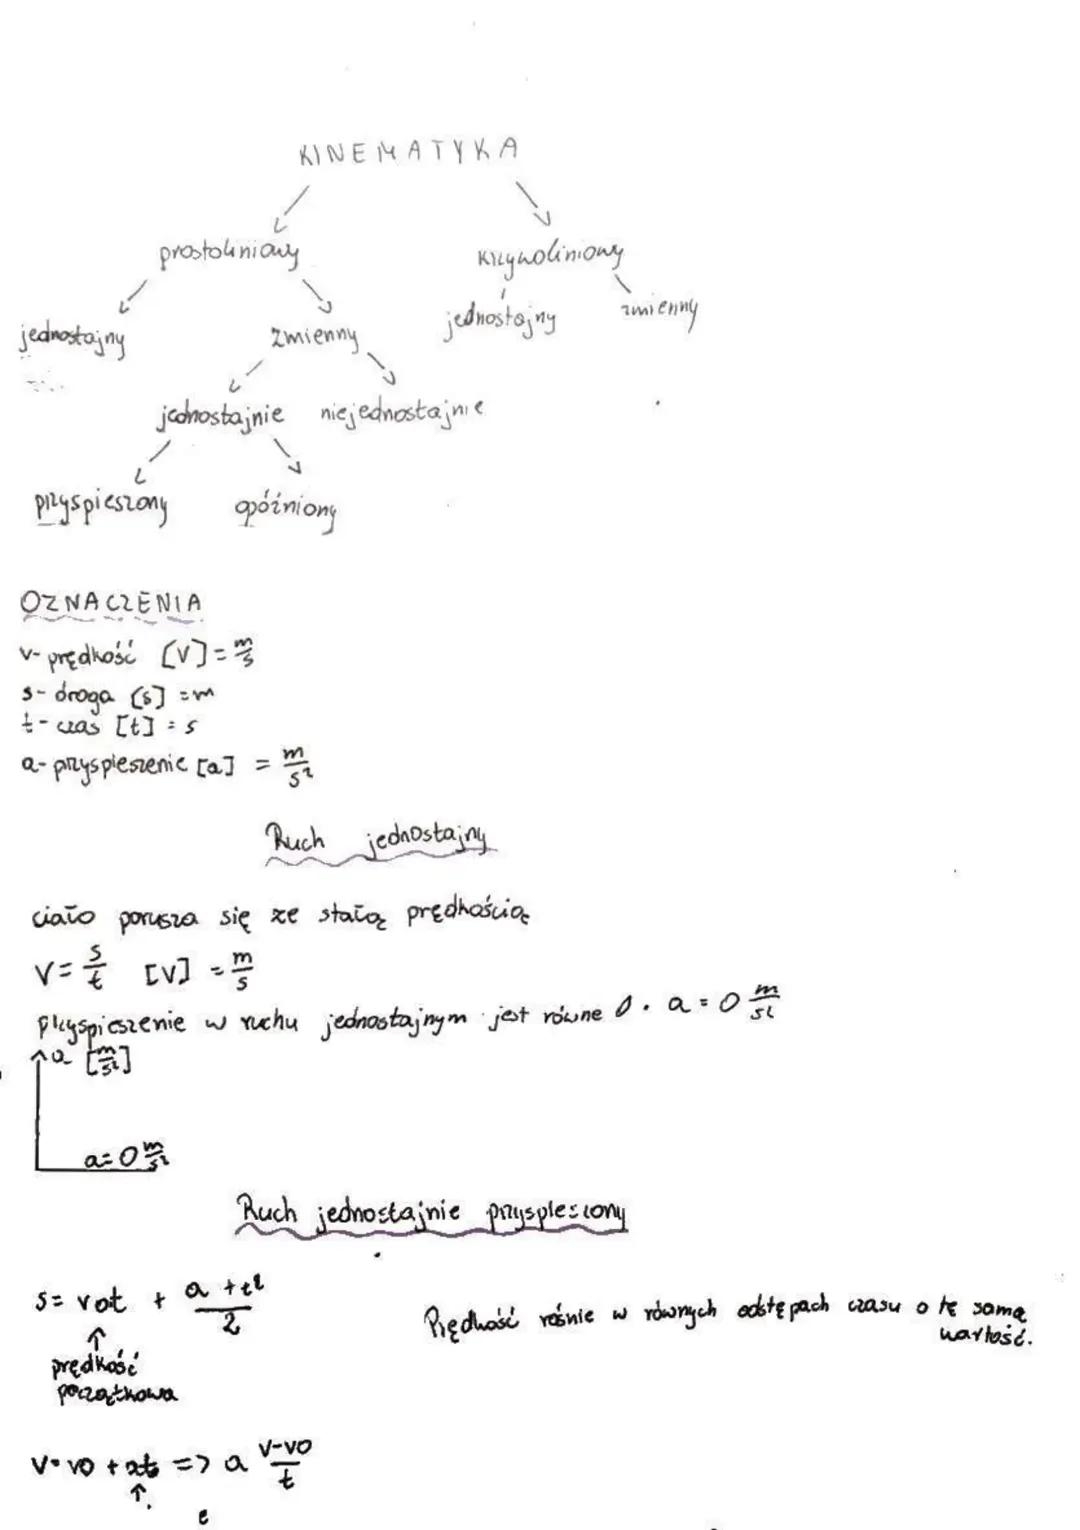 KINEMATYKA
prostoliniowy krzywoliniowy
jednostajny zmienny jednostajny zmienny
jednostajnie niejednostajnie
przyspieszony opóźniony
OZNACZENIA
v- prędkość [V] = m/s
s- droga [s] = m
t- czas [t] = s
a- przyspieszenie [a] = m/s²
Ruch jednostajny
ciało porusza się ze stałą prędkością
V = s/t [V] = m/s
przyspieszenie w ruchu jednostajnym jest równe 0. a = 0 m/s²
a [m/s²]
a = 0 m/s²
Ruch jednostajnie przyspieszony
s = vot + a +t²/2
Prędkość rośnie w równych odstępach czasu o tę samą
wartość.
prędkość
początkowa
v = vo + at => a v-vo/t